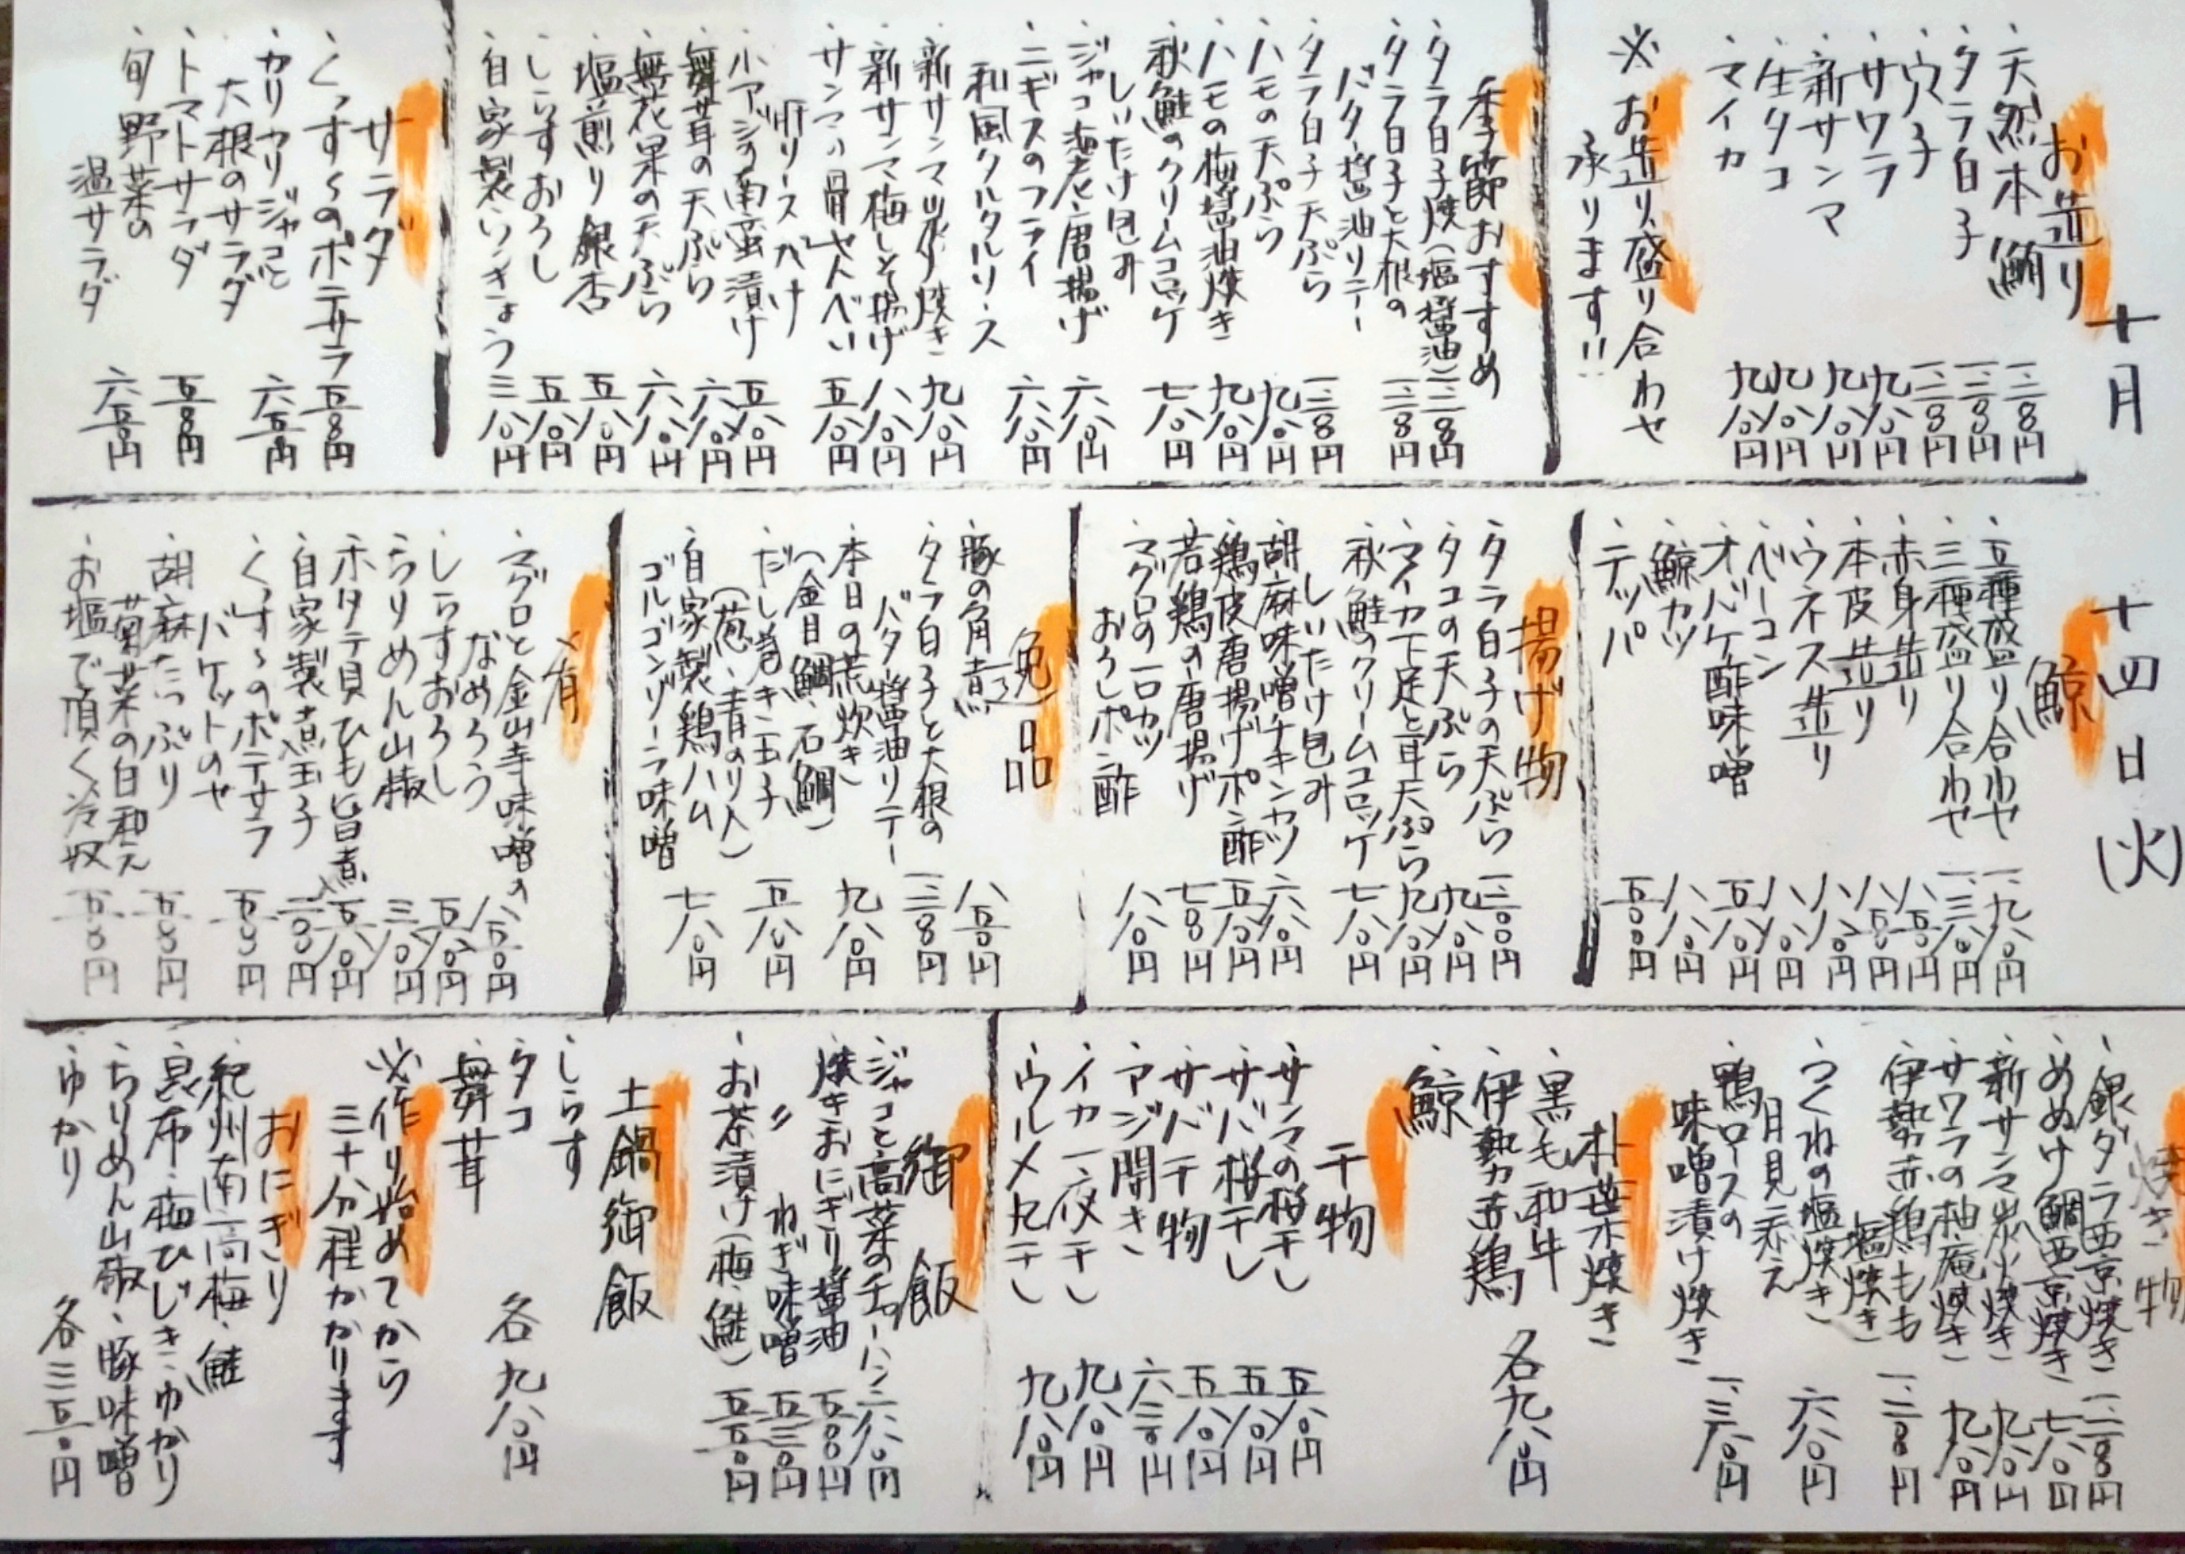 十月
十四日(火)
お造り
・天然本鮪 一、二八〇円
・タラ白子 一、二八〇円
・ウニ 一、二八〇円
・サワラ 九八〇円
・新サンマ 九八〇円
・生タコ 九八〇円
・マイカ 九八〇円
※お造り盛り合わせ
承ります!!
季節おすすめ
・タラ白子焼(塩・醤油)
・タラ白子と大根の
バター醤油ソテー
・タラ白子天ぷら
・ハモの天ぷら 九八〇円
・ハモの梅醤油焼き 九八〇円
・秋鮭のクリームコロッケ 七八〇円
しいたけ包み
・ジャコ海老唐揚げ 六八〇円
・ニギスのフライ 六八〇円
和風タルタルソース
・新サンマ炭火焼き 九八〇円
・新サンマ梅しそ揚げ 八八〇円
・サンマの骨せんべい 五八〇円
肝ソースがけ
・小アジの南蛮漬け 五八〇円
・舞茸の天ぷら 六八〇円
・無花果の天ぷら 六八〇円
・塩煎り銀杏 五八〇円
・しらすおろし 五八〇円
・自家製らっきょう 三八〇円
サラダ
・くっすぅのポテサラ 五五〇円
・カリカリジャコと
大根のサラダ 六五〇円
・トマトサラダ 五五〇円
・旬野菜の
温サラダ 六五〇円
鯨
・五種盛り合わせ 一、九八〇円
・三種盛り合わせ 一、三八〇円
・赤身造り 八五〇円
・本皮造り 八五〇円
・ウネス造り 八八〇円
・ベーコン 八八〇円
・オバケ酢味噌 五八〇円
・鯨カツ 八八〇円
・テッパ 五〇〇円
揚げ物
・タラ白子の天ぷら
・タコの天ぷら 九八〇円
・マイカ下足と耳天ぷら 九八〇円
・秋鮭のクリームコロッケ 七八〇円
しいたけ包み
・胡麻味噌チキンカツ 六八〇円
・鶏皮唐揚げポン酢 五八〇円
・若鶏の唐揚げ
・マグロの一口カツ 八八〇円
おろしポン酢
逸品
・豚の角煮 八五〇円
・タラ白子と大根の
バター醤油ソテー
・本日の荒炊き 九八〇円
(金目鯛、石鯛)
・だし巻き玉子 五八〇円
(葱、青のり入)
・自家製鶏ハム 七八〇円
ゴルゴンゾーラ味噌
〆肴
・マグロと金山寺味噌の 八五〇円
なめろう
・しらすおろし 五八〇円
・ちりめん山椒 三八〇円
・ホタテ貝ひも旨煮 五八〇円
・自家製煮玉子
・くっすぅのポテサラ 五五〇円
バケットのせ
・胡麻たっぷり
菊菜の白和え 五五〇円
・お塩で頂く冷奴 五五〇円
焼き物
・銀ダラ西京焼き 一、二八〇円
・めぬけ鯛西京焼き 七八〇円
・新サンマ炭火焼き 九八〇円
・サワラの柚庵焼き 九八〇円
・伊勢赤鶏もも
塩焼き
・つくねの塩焼き 六八〇円
月見添え
・鴨ロースの
味噌漬け焼き 一、三八〇円
朴葉焼き
・黒毛和牛
・伊勢赤鶏 各九八〇円
・鯨
干物
・サンマの桜干し 五八〇円
・サバ桜干し 五八〇円
・サバ干物 五八〇円
・アジ開き 六三〇円
・イカ一夜干し 九八〇円
・ウルメ丸干し 九八〇円
御飯
・ジャコと高菜のチャーハン 六八〇円
・焼きおにぎり醤油 五〇〇円
〃 ねぎ味噌 五三〇円
・お茶漬け(梅、鮭) 五五〇円
土鍋御飯
・しらす
・タコ 各九八〇円
・舞茸
※作り始めてから
三十分程かかります
おにぎり
・紀州南高梅・鮭
・昆布・梅ひじき・ゆかり
・ちりめん山椒・豚味噌
・ゆかり 各三五〇円